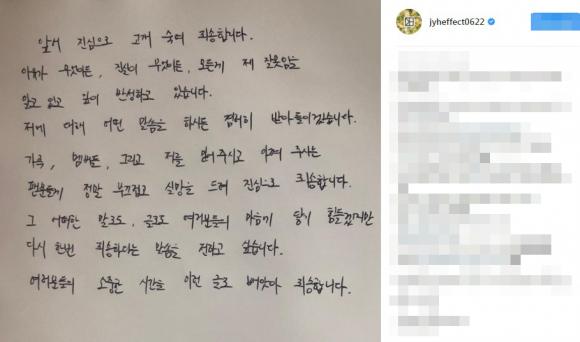 앞서 진심으로 고개 숙여 죄송합니다.
이유가 무엇이든, 진실이 무엇이든, 모든게 제 잘못임을
알고 있고 깊이 반성하고 있습니다.
저에 대해 어떤 말씀을 하시든 겸허히 받아들이겠습니다.
가족, 멤버들, 그리고 저를 믿어 주시고 아껴 주시는
팬분들께 정말 부끄럽고 실망을 드려 진심으로 죄송합니다.
그 어떠한 말로도, 글로도 여러분들의 마음이 닿기 힘들겠지만
다시 한번 죄송하다는 말씀을 전하고 싶습니다.
여러분들의 소중한 시간을 이런 글로 뺏었다 죄송합니다.
jyheffect0622